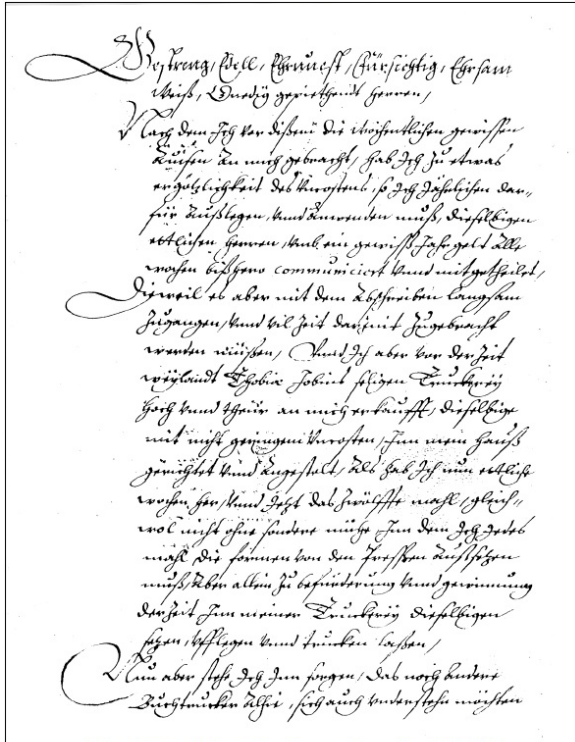 Gestreng, Edell, Ehrnuest, Fürsichtig, Ehrsam
Weiß, Gnedig gepiethendt Herren,
Nach dem Ich vor disem die wöchentlichen gewissen
Auisen an mich gebracht, hab Ich zu etwas
ergötzlichkeit des Vncostens, so Ich Jährlichen dar-
für außlegen, vnnd anwenden muß, dieselbigen
ettlichen Herren, vmb ein gewiß Jahrgelt alle
wochen bißhero communiciert vnnd mitgetheilet,
Dieweil es aber mit dem Abschreiben langsam
zugangen, vnnd vil Zeit darmit zugebracht
werden müßen, Vnnd Ich aber vor der Zeit
weylandt Thobiæ Jobins seligen Truckerey
hoch vnnd theür an mich erkaufft, dieselbige
mit nicht geringem Vncosten, Inn mein Hauß
gerichtet vnnd angestelt, Als hab Ich nun ettliche
wochen her, vnnd Jetzt das zwölffte mahl, gleich-
wol nicht ohne sondere mühe Inn dem Ich Jedes
mahl die formen von den Pressen außsetzen
muß, Aber allein zu befürderung vnnd gewinnung
der Zeit Inn meiner Truckerey dieselbigen
setzen, vfflegen vnnd trucken laßen,
Nun aber stehe Ich Inn sorgen, das noch andere
Buchtrucker Alhie, sich auch vnderstehn möchten